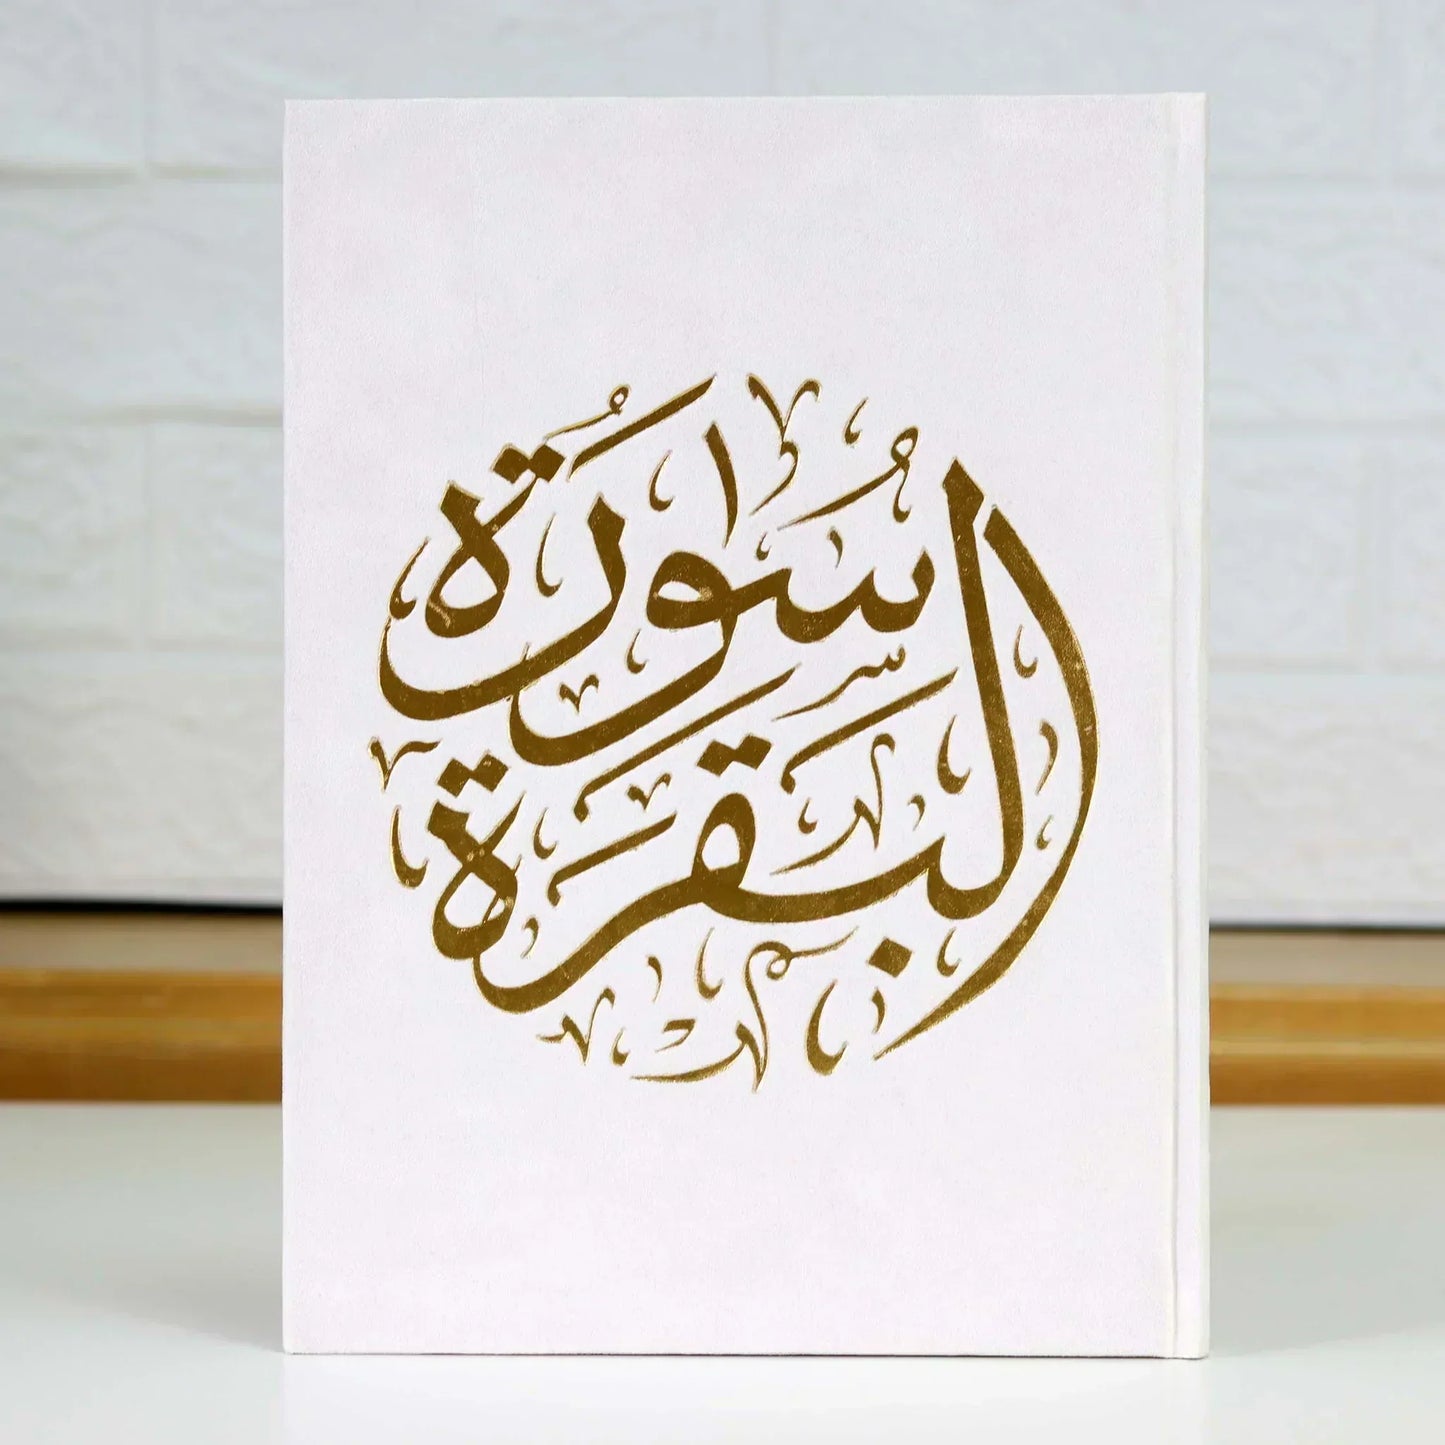 سُورَةُ
البقرة